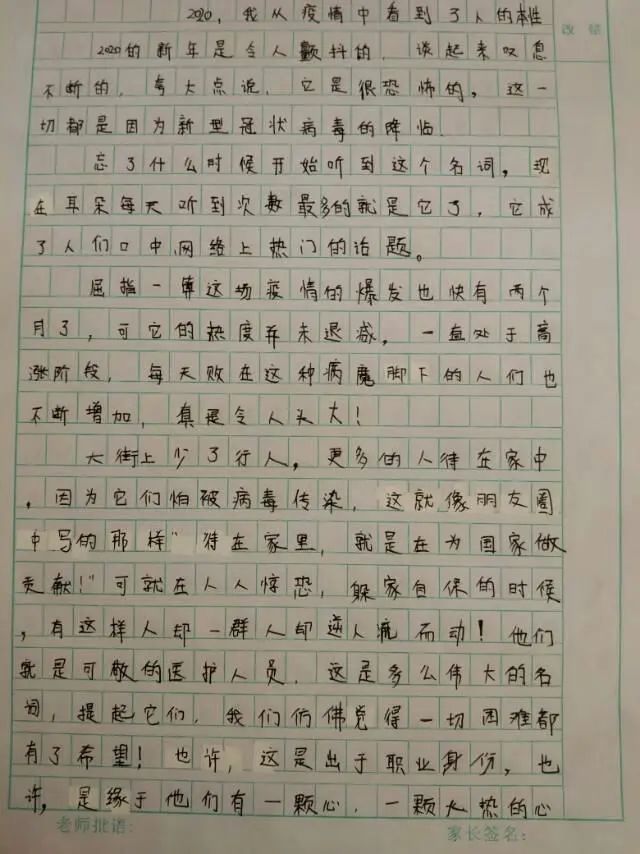 2020，我从疫情中看到了人的本性
改错
2020的新年是令人颤抖的，谈起来叹息
不断的，夸大点说，它是很恐怖的，这一
切都是因为新型冠状病毒的降临
忘了什么时候开始听到这个名词，现
在耳朵每天听到次数最多的就是它了，它成
了人们口中网络上热门的话题。
屈指一算这场疫情的爆发也快有两个
月了，可它的热度并未退减，一直处于高
涨阶段，每天败在这种病魔脚下的人们也
不断增加，真是令人头大！
大街上少了行人，更多的人待在家中
，因为它们怕被病毒传染，这就像朋友圈
中写的那样"待在家里，就是在为国家做
贡献！"可就在人人惊恐，躲家自保的时候
，有这样人却一群人却逆人流而动！他们
就是可敬的医护人员，这是多么伟大的名
词，提起它们，我们仿佛觉得一切困难都
有了希望！也许，这是出于职业身份，也
许，是缘于他们有一颗心，一颗火热的心
老师批语：
家长签名：